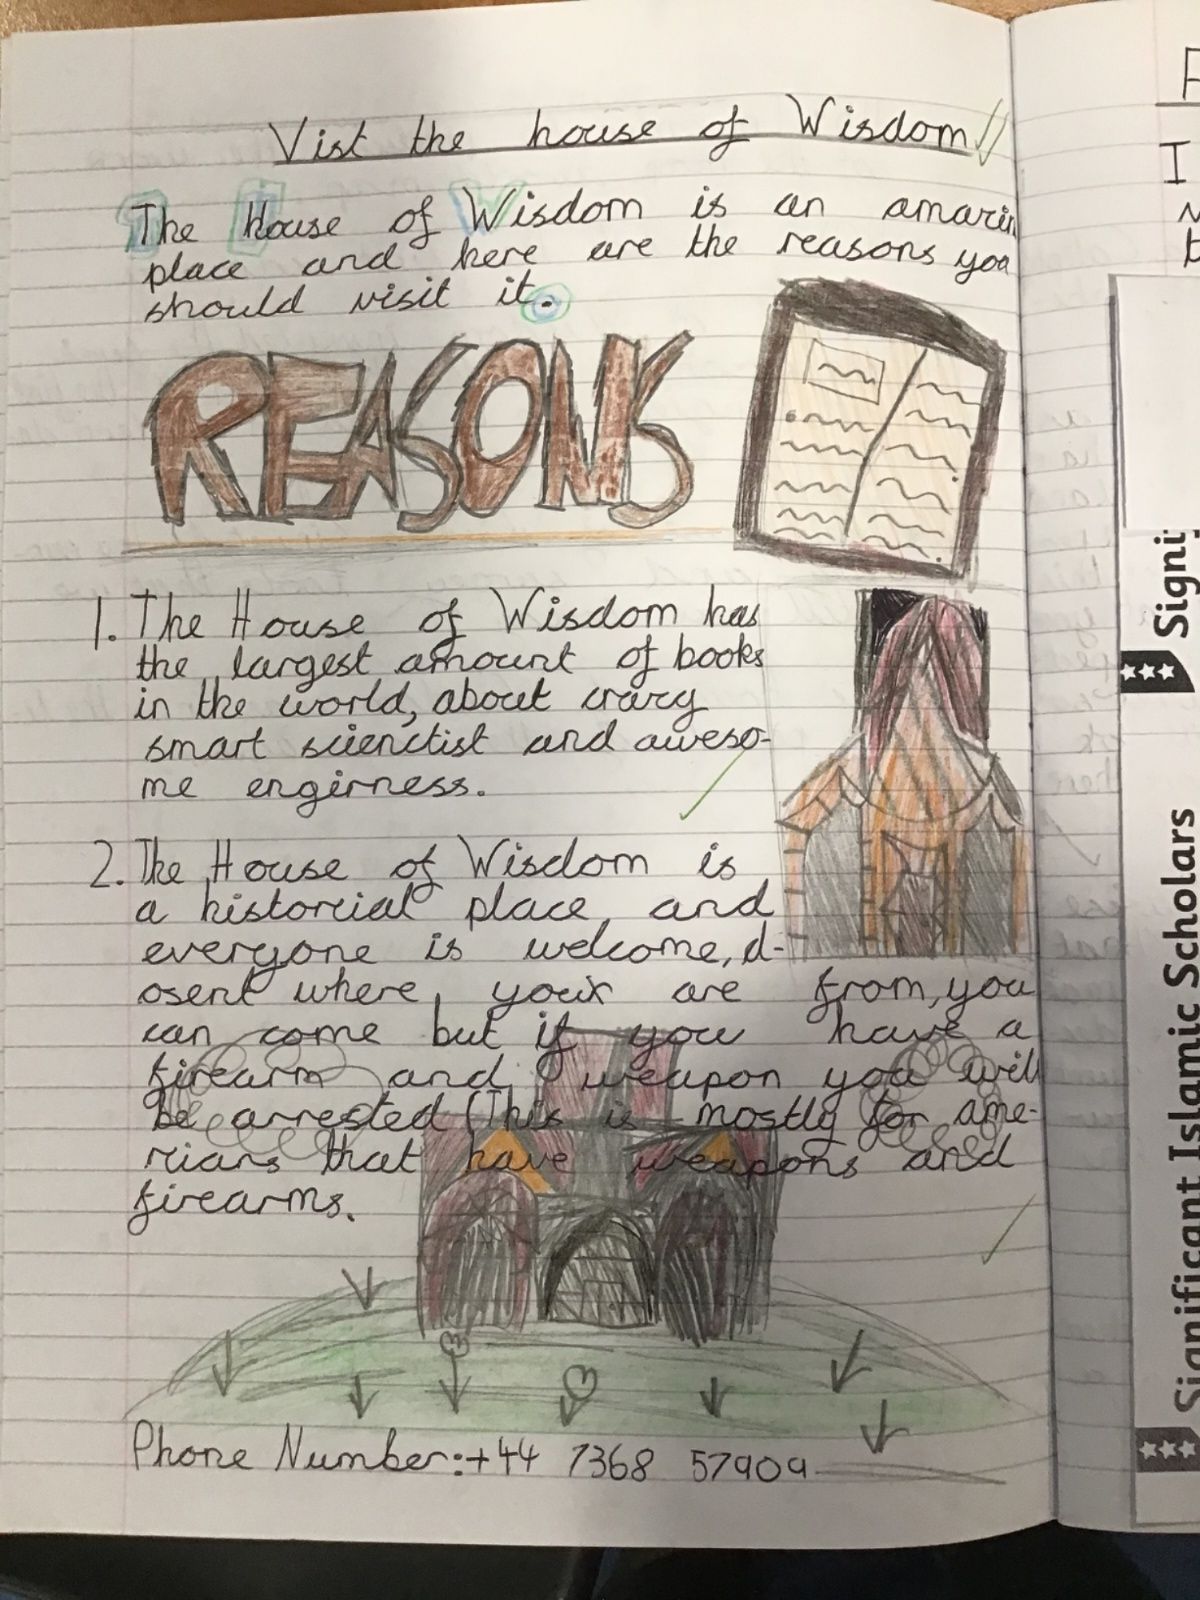 Vist the house of Wisdom
The House of Wisdom is an amazin
place and here are the reasons you
should visit it.
REASONS
1. The House of Wisdom has
the largest amount of books
in the world, about crazy
smart scienctist and aweso-
me engirness.
2. The House of Wisdom is
a historcial place and
everyone is welcome, d-
osent where your are from, you
can come but if you have a
firearm and weapon you will
be arrested (This is mostly for ame-
ricans that have weapons and
firearms.
Phone Number: +44 7368 57909
I
Signi
Significant Islamic Scholars